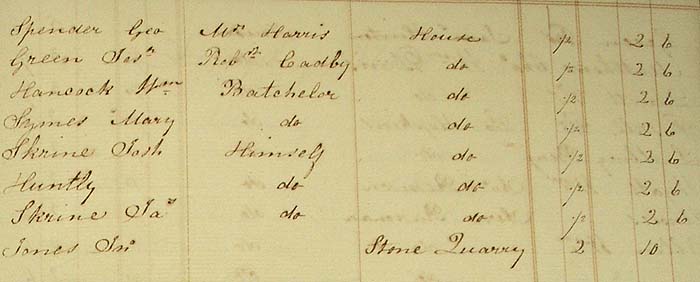 Spender Geo Mrs Harris House 1/2 2 6
Green Jos^h Rob^t Cadby do 1/2 2 6
Hancock Wm Batchelor do 1/2 2 6
Symes Mary do do 1/2 2 6
Skrine Josh Himself do 1/2 2 6
Huntly do do 1/2 2 6
Skrine Ja^s do do 1/2 2 6
Jones Jn^o Stone Quarry 2 10